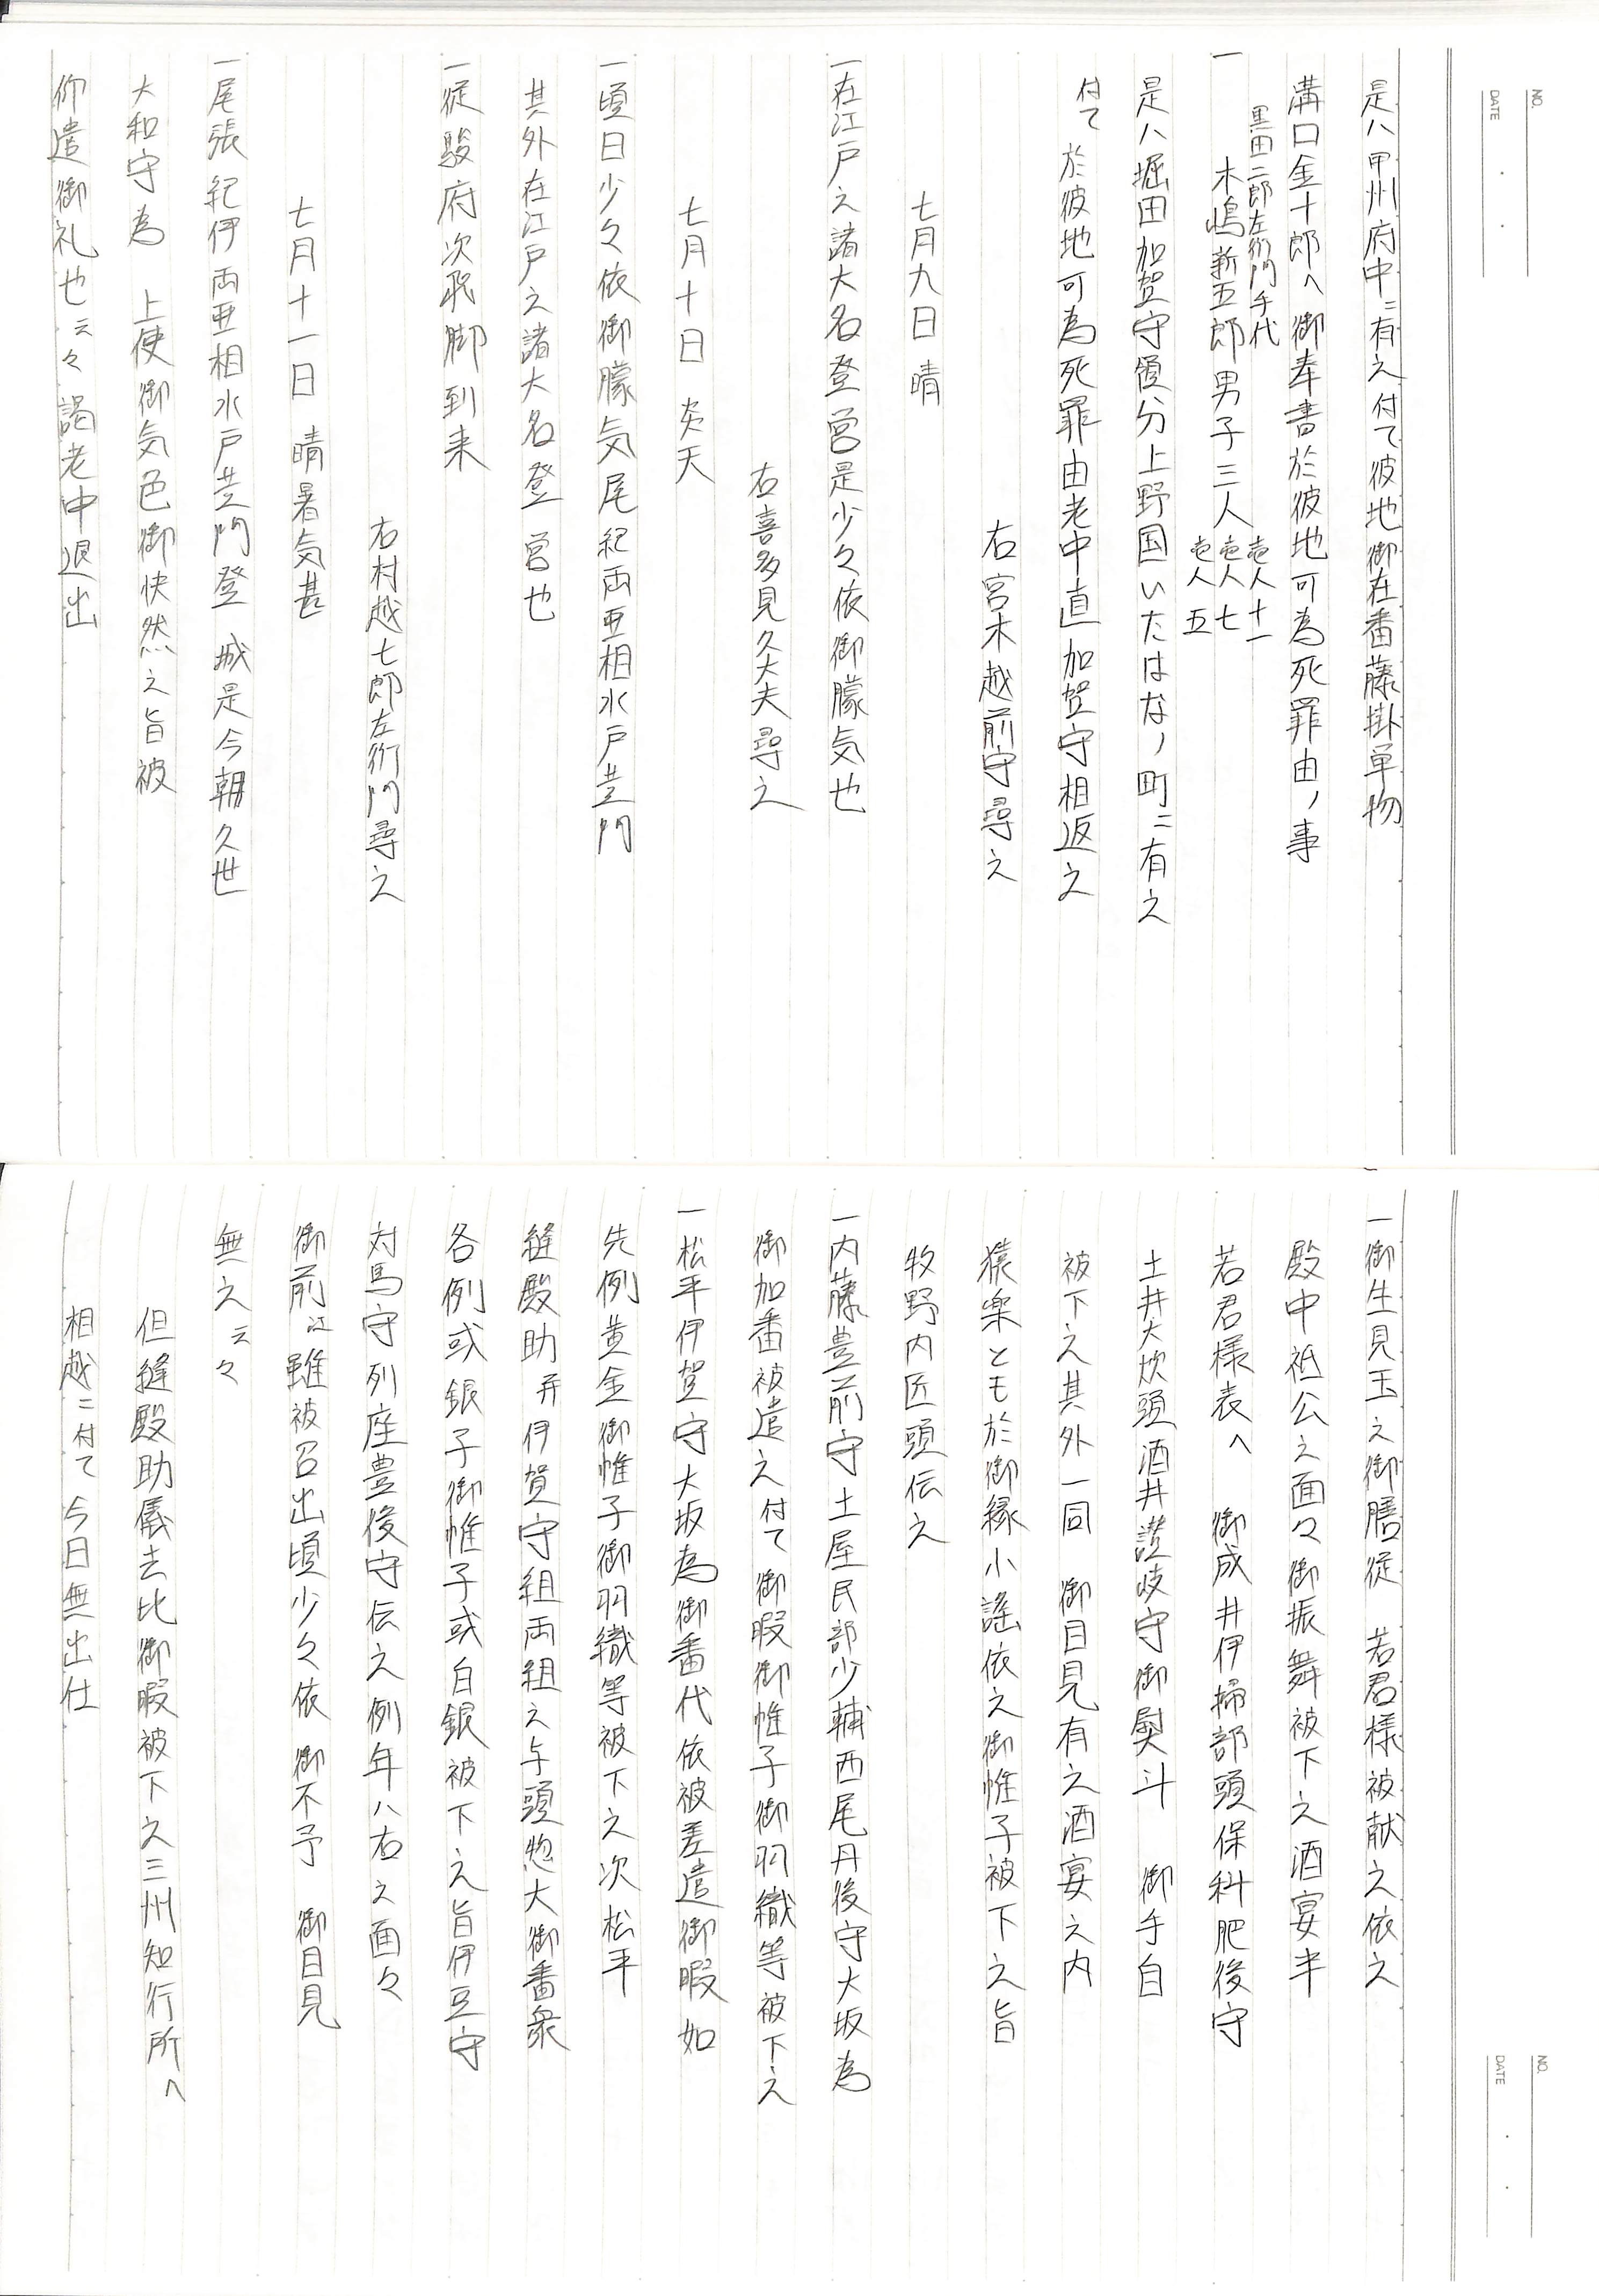 NO.
DATE
是ハ甲州府中ニ有之付て彼地御在番藤掛単物
溝口金十郎へ御奉書於彼地可為死罪由ノ事
黒田二郎左衛門手代
一 木嶋新五郎男子三人 壱人十一 壱人七 壱人五
是ハ堀田加賀守領分上野国いたはなノ町ニ有之
付て於彼地可為死罪由老中直加賀守相返之
右宮木越前守尋之
七月九日 晴
一在江戸之諸大名登 営是少々依御朦気也
右喜多見久大夫尋之
七月十日 炎天
一頃日少々依御朦気尾紀両亜相水戸黄門
其外在江戸之諸大名登 営也
一従駿府次飛脚到来
右村越七郎左衛門尋之
七月十一日 晴暑気甚
一尾張紀伊両亜相水戸黄門登 城是今朝久世
大和守為 上使御気色御快然之旨被
仰遣御礼也云々謁老中退出
NO.
DATE
一御生見玉之御膳従 若君様被献之依之
殿中祗公之面々御振舞被下之酒宴半
若君様表へ 御成井伊掃部頭保科肥後守
土井大炊頭酒井讃岐守御熨斗 御手自
被下之其外一同 御目見有之酒宴之内
猿楽とも於御縁小謡依之御帷子被下之旨
牧野内匠頭伝之
一内藤豊前守土屋民部少輔西尾丹後守大坂為
御加番被遣之付て御暇御帷子御羽織等被下之
一松平伊賀守大坂為御番代依被差遣御暇如
先例黄金御帷子御羽織等被下之次松平
縫殿助并伊賀守組両組之与頭惣大御番衆
各例或銀子御帷子或白銀被下之旨伊豆守
対馬守列座豊後守伝之例年ハ右之面々
御前江雖被召出頃少々依 御不予 御目見
無之云々
但縫殿助儀去比御暇被下之三州知行所へ
相越ニ付て今日無出仕